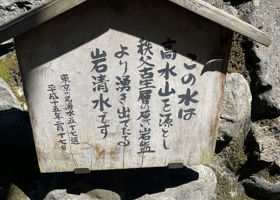 この水は
高水山を源とし
秩父古生層の厚い岩盤
より湧き出でたる
岩清水です
東京の名湧水五十七選
平成十五年二月十七日